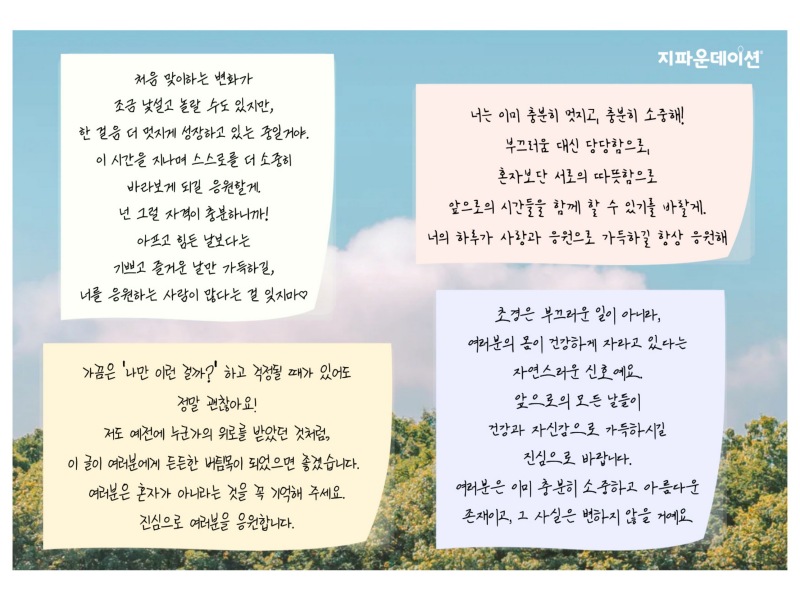 지파운데이션
처음 맞이하는 변화가
조금 낯설고 놀랄 수도 있지만,
한 걸음 더 멋지게 성장하고 있는 중일거야.
이 시간을 지나며 스스로를 더 소중히
바라보게 되길 응원할게.
넌 그럴 자격이 충분하니까!
아프고 힘든 날보다는
기쁘고 즐거운 날만 가득하길,
너를 응원하는 사람이 많다는 걸 잊지마♡
너는 이미 충분히 멋지고, 충분히 소중해!
부끄러움 대신 당당함으로,
혼자보단 서로의 따뜻함으로
앞으로의 시간들을 함께 할 수 있기를 바랄게.
너의 하루가 사랑과 응원으로 가득하길 항상 응원해
가끔은 '나만 이런 걸까?' 하고 걱정될 때가 있어도
정말 괜찮아요!
저도 예전에 누군가의 위로를 받았던 것처럼,
이 글이 여러분에게 든든한 버팀목이 되었으면 좋겠습니다.
여러분은 혼자가 아니라는 것을 꼭 기억해 주세요.
진심으로 여러분을 응원합니다.
초경은 부끄러운 일이 아니라,
여러분의 몸이 건강하게 자라고 있다는
자연스러운 신호예요.
앞으로의 모든 날들이
건강과 자신감으로 가득하시길
진심으로 바랍니다.
여러분은 이미 충분히 소중하고 아름다운
존재이고, 그 사실은 변하지 않을 거예요